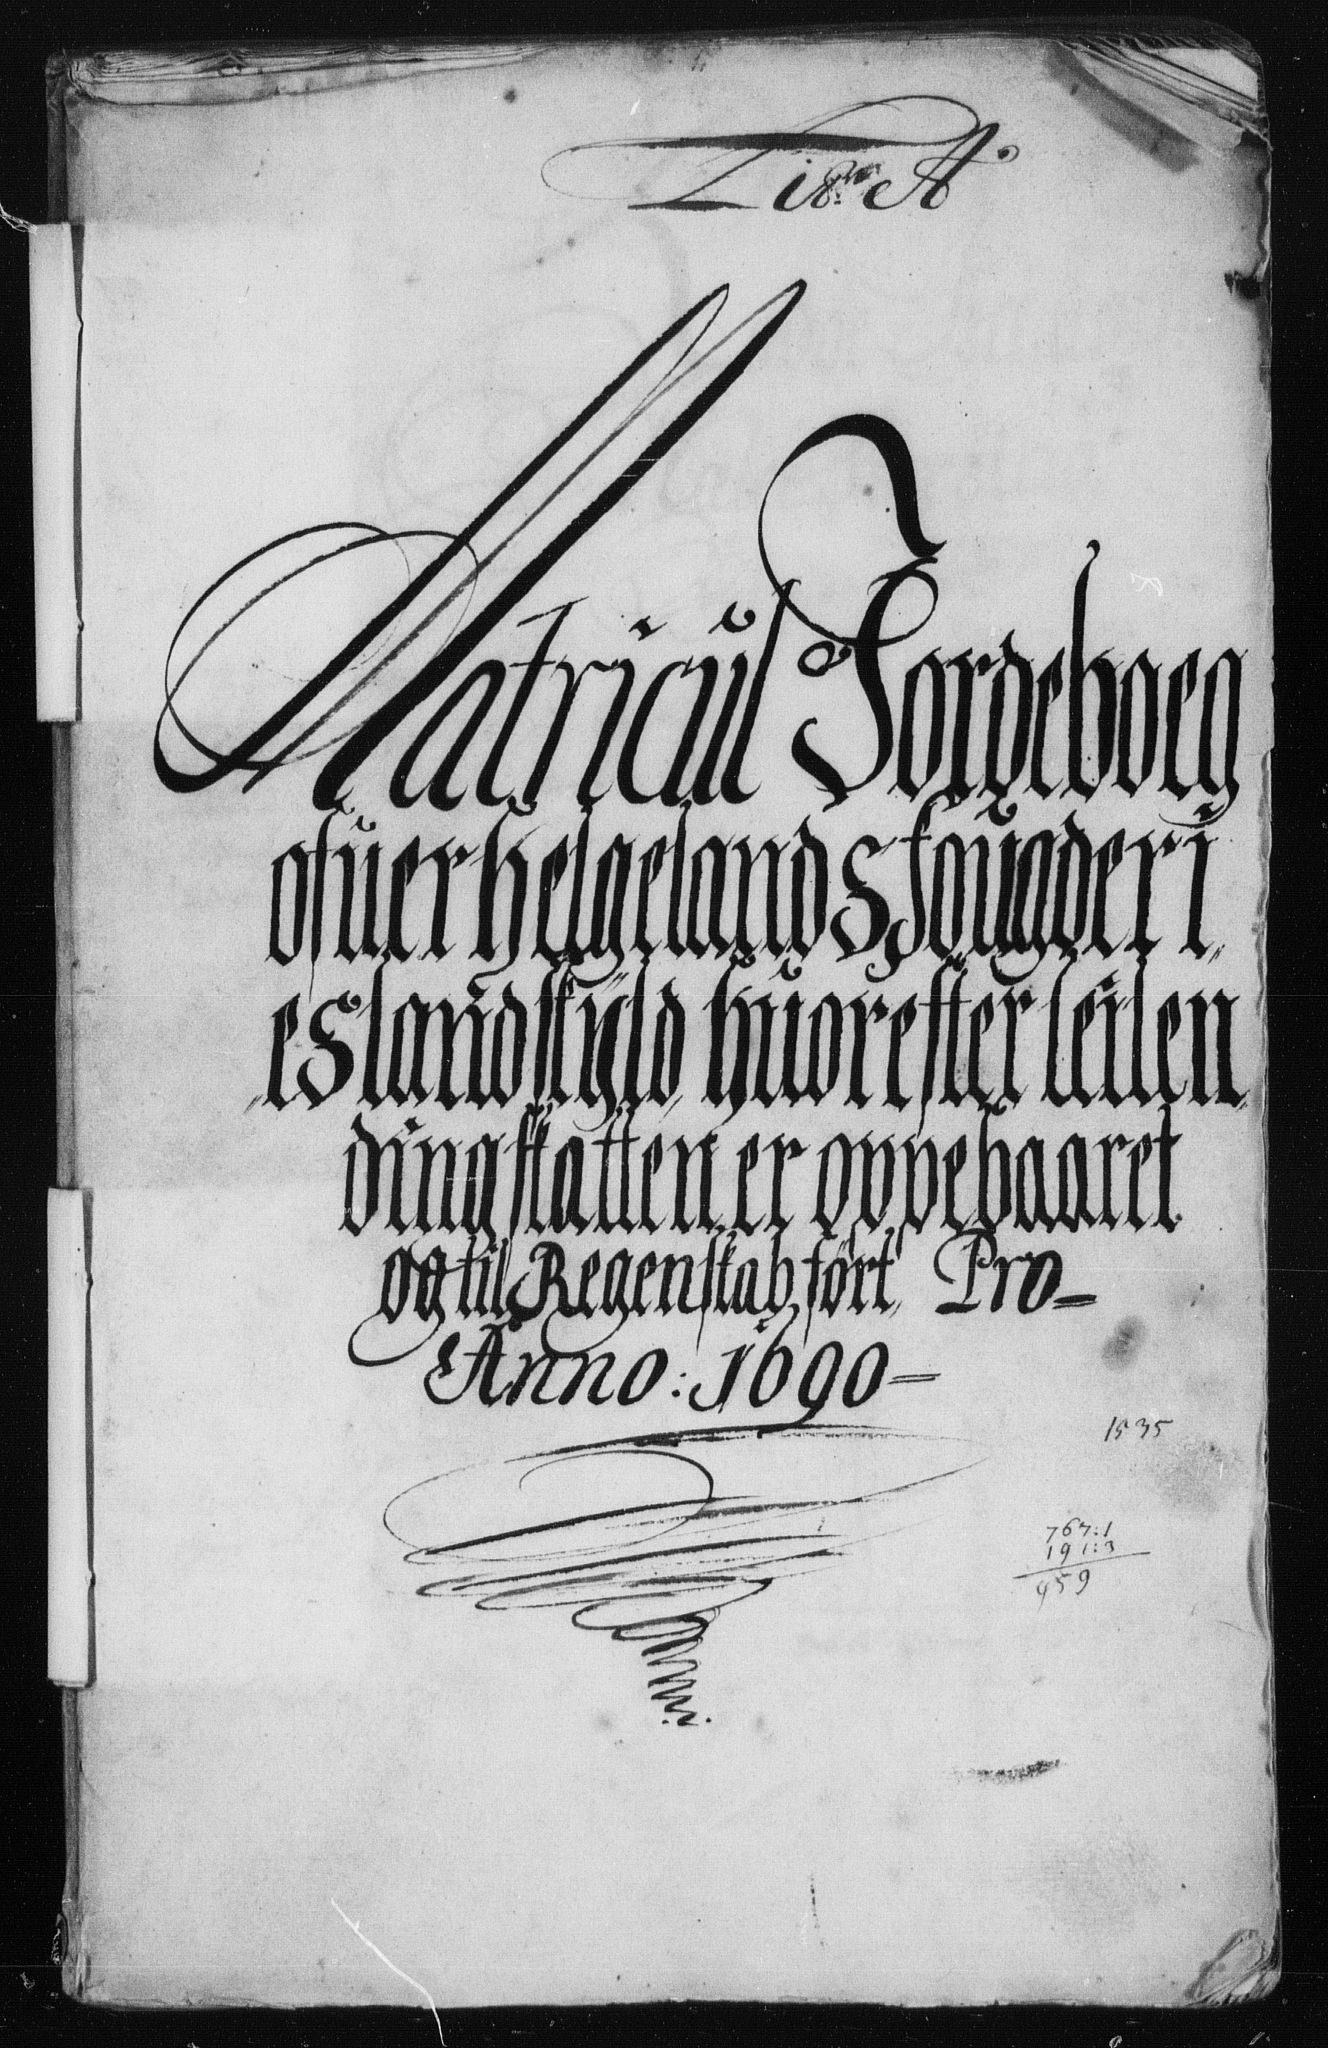 A
Matricul Jordeboeg
ofuer helgelands fougderi„
„es landskyld huorefter leilen„
dingskatten er oppebaaret
og til Regenskab ført, Pro-
Anno: 1690-
1535
767:1
191:3
959